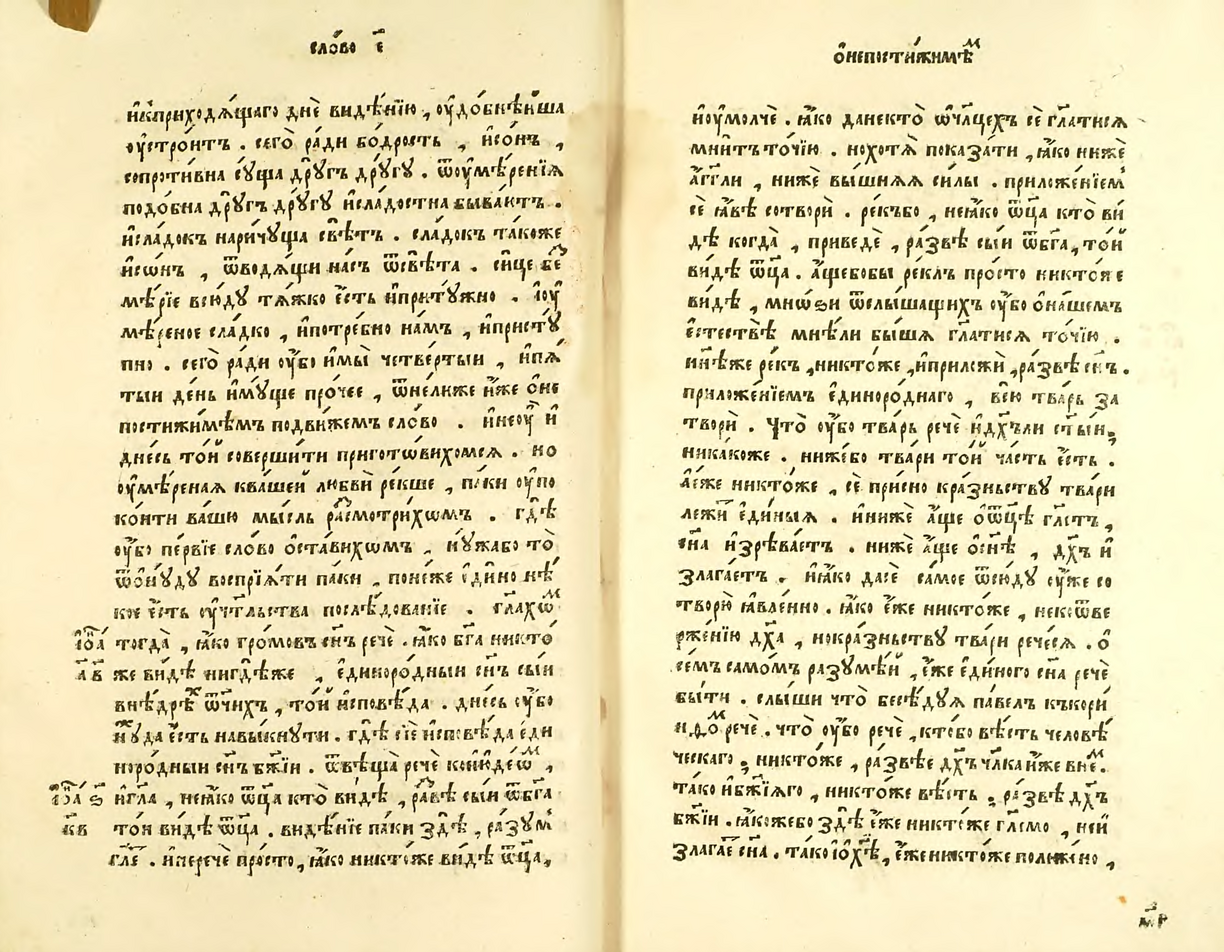 сло́во є҃
и҆к̾приходѧ́щаго днѐ видѣ́нїю , оу҆до́бнѣиша
оу҆стро́итъ . сего̀ ра́ди бо́дрость , и҆со́нъ ,
сопроти́вна су́ща дру́гъ дру́гꙋ . ѿоумѣ́ренїѧ
подо́бна дру́гъ дру́гꙋ и҆сла́достна быва́ютъ .
и҆сла́докъ наричꙋ́ща свѣ́тъ . сла́докъ та́коже
и҆со́нъ , ѿводѧ́щи на́съ ѿсвѣ́та . си́це бе
мѣ́рїе всю́дꙋ тѧ́жко є҆́сть и҆притꙋ́жно . їоу҆
мѣ́реное сла́дко , и҆потре́бно на́мъ , и҆пристꙋ́
пно . сего̀ ра́ди оу҆́бо и҆мы̀ четве́ртыи , и҆пѧ́
тыи де́нь и҆мꙋ́ще про́чее , ѿне́лиже и҆́же ѻ҆не
постижи́мѣмъ подви́жемъ сло́во . и҆неоу҆ и҆
дне́сь то́и соверши́ти приготѡ́вихомсѧ . но
оу҆мѣ́реная ква́шеи любвѝ ре́кше , па́ки оу҆по
ко́ити ва́шю мы́сль расмотри́хѡмъ . гдѣ̀
оу҆́бо пе́рвїе сло́во ѻ҆ста́вихѡмъ , нꙋ́жабо то̀
ѿѻ҆нꙋ́дꙋ воспрїѧ́ти па́ки , поне́же є҆ди́но нѣ́
кое є҆́сть оу҆чт҃льства послѣ́дованїе . гл҃ахѡⷨ
і҆ѡ҃а́ тогда̀ , ꙗ҆́ко гро́мовъ сн҃ъ речѐ . ꙗ҆́ко бг҃а никто́
а҃ в҃ же ви́дѣ нигдѣ́же , є҆диноро́дныи сн҃ъ сы́и
внѣ́дрѣⷯ ѿ҃чихъ , то́и и҆сповѣ́да . дне́сь оу҆́бо
нꙋⷤда є҆́сть навы́кнꙋти . гдѣ̀ сїѐ и҆сповѣ́да є҆ди
норо́дныи сн҃ъ бж҃їи . ѿвѣща̀ речѐ коїюде́ѡⷨ ,
і҆ѡ҃а́ ѕ҃ и҆гл҃а , неꙗ҆́ко ѿц҃а кто̀ ви́дѣ , ра́звѣ сы́и ѿбг҃а
к҃в то́и ви́дѣ ѿц҃а . видѣ́нїе па́ки здѣ̀ , ра́зꙋмъ
гл҃е . и҆перечѐ про́сто , ꙗ҆́ко никто́же ви́дѣ ѿц҃а ,
ѻ҆непостижи́мѣⷨ
ноу҆молчѐ . ꙗ҆́ко данекто̀ ѿчл҃цехъ сѐ гл҃атисѧ
мни́тъ то́чїю . нохотѧ̀ показа́ти , ꙗ҆́ко нижѐ
а҆́гг҃ли , нижѐ вы́шнѧѧ си́лы . приложе́нїемъ
сѐ ꙗ҆́вѣ сотворѝ . ре́къбо , неꙗ҆́ко ѿц҃а кто̀ ви́
дѣ когда̀ , приведѐ , ра́звѣ сы́и ѿбг҃а , то́и
ви́дѣ ѿц҃а . а҆́щебобы ре́клъ про́сто никто́же
ви́дѣ , мнѡ́ѕи ѿслы́шащихъ оу҆́бо ѻ҆на́шемъ
є҆стествѣ̀ мнѣ́ли бы́шѧ гл҃атисѧ то́чїю .
ннѣ́же ре́къ , никто́же , и҆приложѝ , ра́звѣ сн҃ъ .
приложе́нїемъ є҆диноро́днаго , всю̀ тва́рь за
творѝ . Что̀ оу҆́бо тва́рь речѐ и҆дх҃ъли ст҃ыи ;
ника́коже . ниже́бо тва́ри то́и ча́сть є҆́сть .
а҆е҆́же никто́же , сѐ при́сно кра́зньствꙋ тва́ри
лежи́ є҆ди́ныѧ . и҆нижѐ а҆́ще ѻ҆ѿц҃ѣ гл҃етъ ,
сн҃а и҆зрѣва́етъ . нижѐ а҆́ще ѻ҆сн҃ѣ , дх҃ъ и҆
злага́етъ . и҆ꙗ҆́ко дасѐ са́мое ѿсю́дꙋ оу҆́же со
творю̀ ꙗ҆вле́нно . ꙗ҆́ко є҆́же никто́же , некѡ҆ве
рже́нїю дх҃а , нокра́зньствꙋ тва́ри рече́сѧ . ѻ҆
се́мъ само́мъ разꙋмѣ́и , є҆́же є҆ди́ного сн҃а речѐ
бы́ти . слы́ши что̀ бесѣ́дꙋѧ па́велъ къкори
нѳⷨѡ речѐ . что̀ оу҆́бо речѐ , кто́бо вѣ́сть человѣ́
ческаго ; никто́же , ра́звѣе дх҃ъ чл҃ка и҆́же внеⷨ .
та́ко и҆бж҃їѧго , никто́же вѣ́сть ; ра́звѣ дх҃ъ
бж҃їи . ꙗ҆́кожебо здѣ̀ є҆́же никто́же гл҃емо , неи҆
злага́е сн҃а . та́ко і҆ѻ҆дх҃ѣ , є҆́же никто́же поло́жено ,